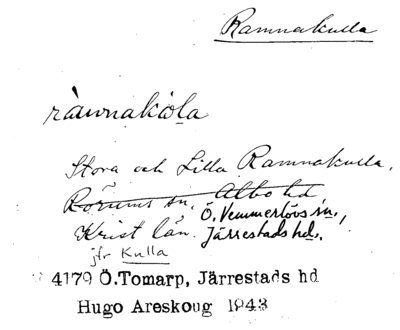 Ramnakulla
ràwnakòla
Stora och Lilla Ramnakulla,
Rörums sn, Albo hd,
Ö. Vemmerlövs sn.,
Krist län. Järrestads hd.
jfr Kulla
4179 Ö.Tomarp, Järrestads hd
Hugo Areskoug 1943